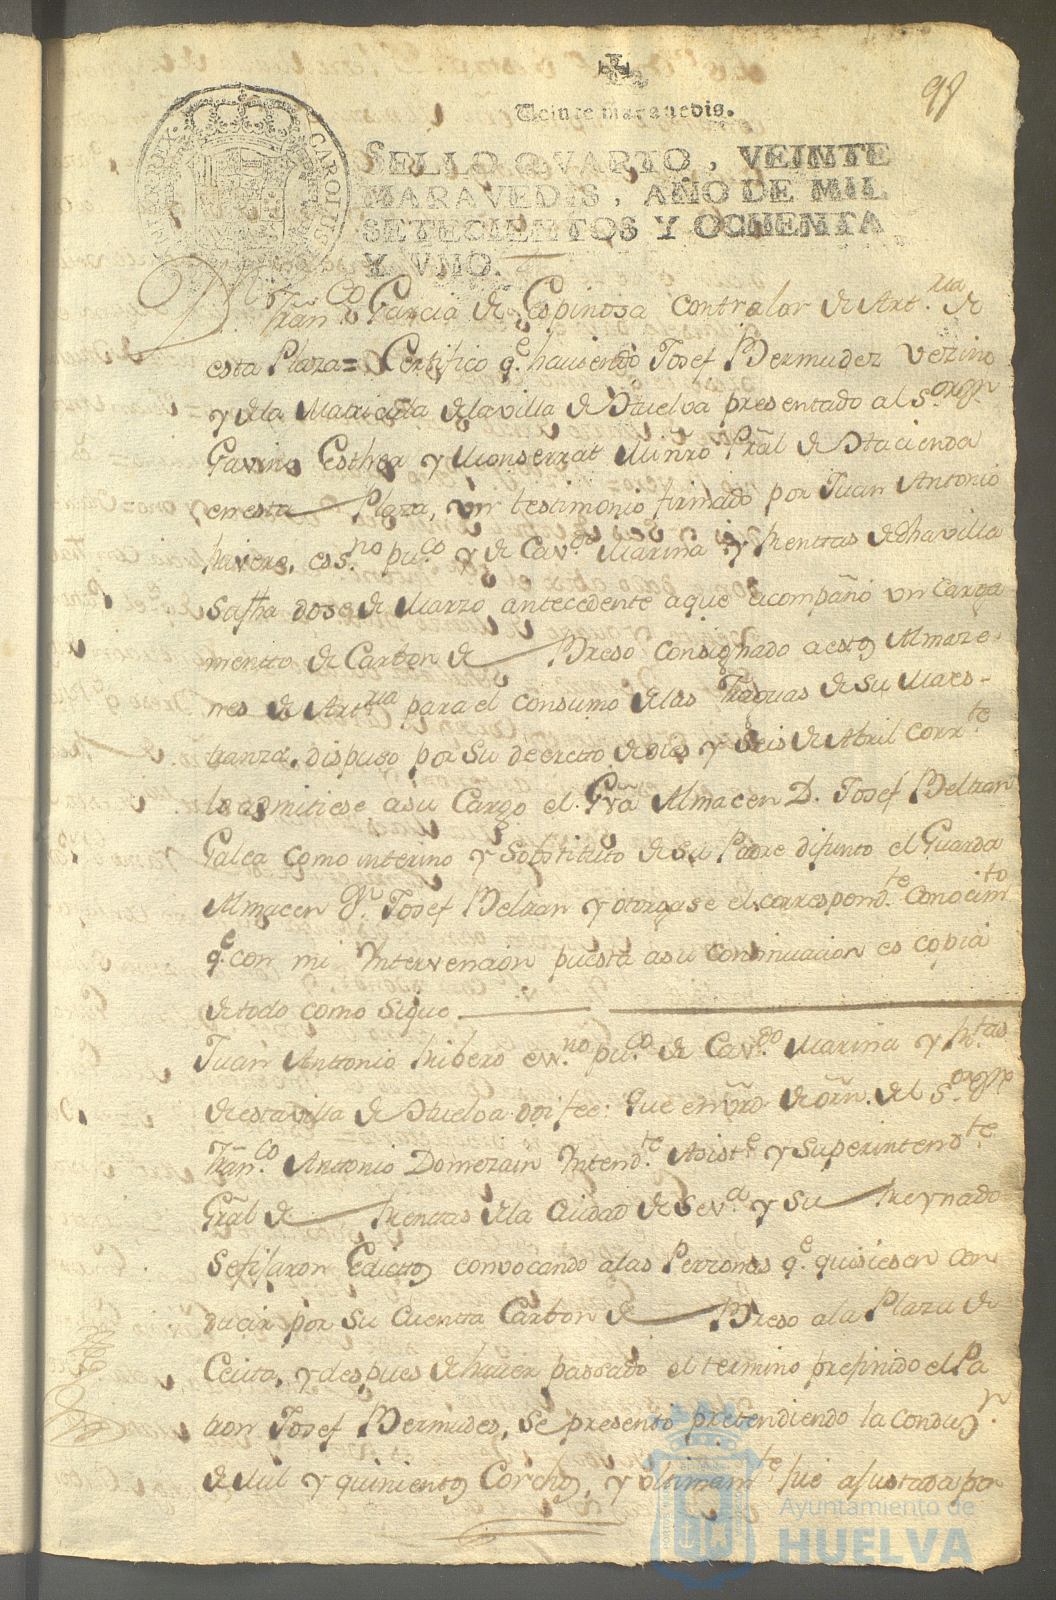 98
Veinte maravedis.
SELLO QVARTO, VEINTE
MARAVEDIS, AÑO DE MIL
SETECIENTOS Y OCHENTA
Y VNO.
CAROLUS III
D. Franco. Garcia de Espinosa Contralor de Art.ria de
esta Plaza = Certifico q.e haviendo Josef Bermudez vezino
y de la Matricula de la villa de Huelva presentado al S.or
Gavino Esthea y Monserrat Minro Pral de Hacienda
en esta Plaza, un testimonio firmado por Juan Antonio
Rivero, ess.no pu.co y de Cav.do Marina y Rentas de dha villa
su fha dose de Marzo antecedente a que acompañó un Carga
mentto de Carbon de Breso Consignado a estos Almaze-
nes de Art.ria para el Consumo de las Fraguas de su Maes-
tranza, dispuso por su decreto de dies y seis de Abril corr.te
lo admitiese a su Cargo el Gda Almacen D. Josef Beltran
Galea como interino y Sobstituto de su Padre difunto el Guarda
Almacen Dn. Josef Beltran y otorgase el correspond.te Conocim.to
q.e con mi Intervencion puesta a su Continuacion es copia
de todo como sigue
Juan Antonio Ribero ess.no pu.co de Cav.do Marina y R.tas
de esta villa de Huelva doi fee: Que en vrd de orn. del S.or
Fran.co Antonio Domezain Intend.te Asist.e y Superintend.te
Gral de Rentas de la Ciudad de Sev.a y su Reynado
se fijaron Edictos convocando a las Perzonas q.e quisiesen con
ducir por su Cuenta Carbon de Breso a la Plaza de
Ceuta, y despues de haver passado el termino prefinido el Pa
tron Josef Bermudes, se presentó pretendiendo la Conduz.n
de Mil y quinientos Corchos, y ultimam.te fue ajustada por
Ayuntamiento de
HUELVA